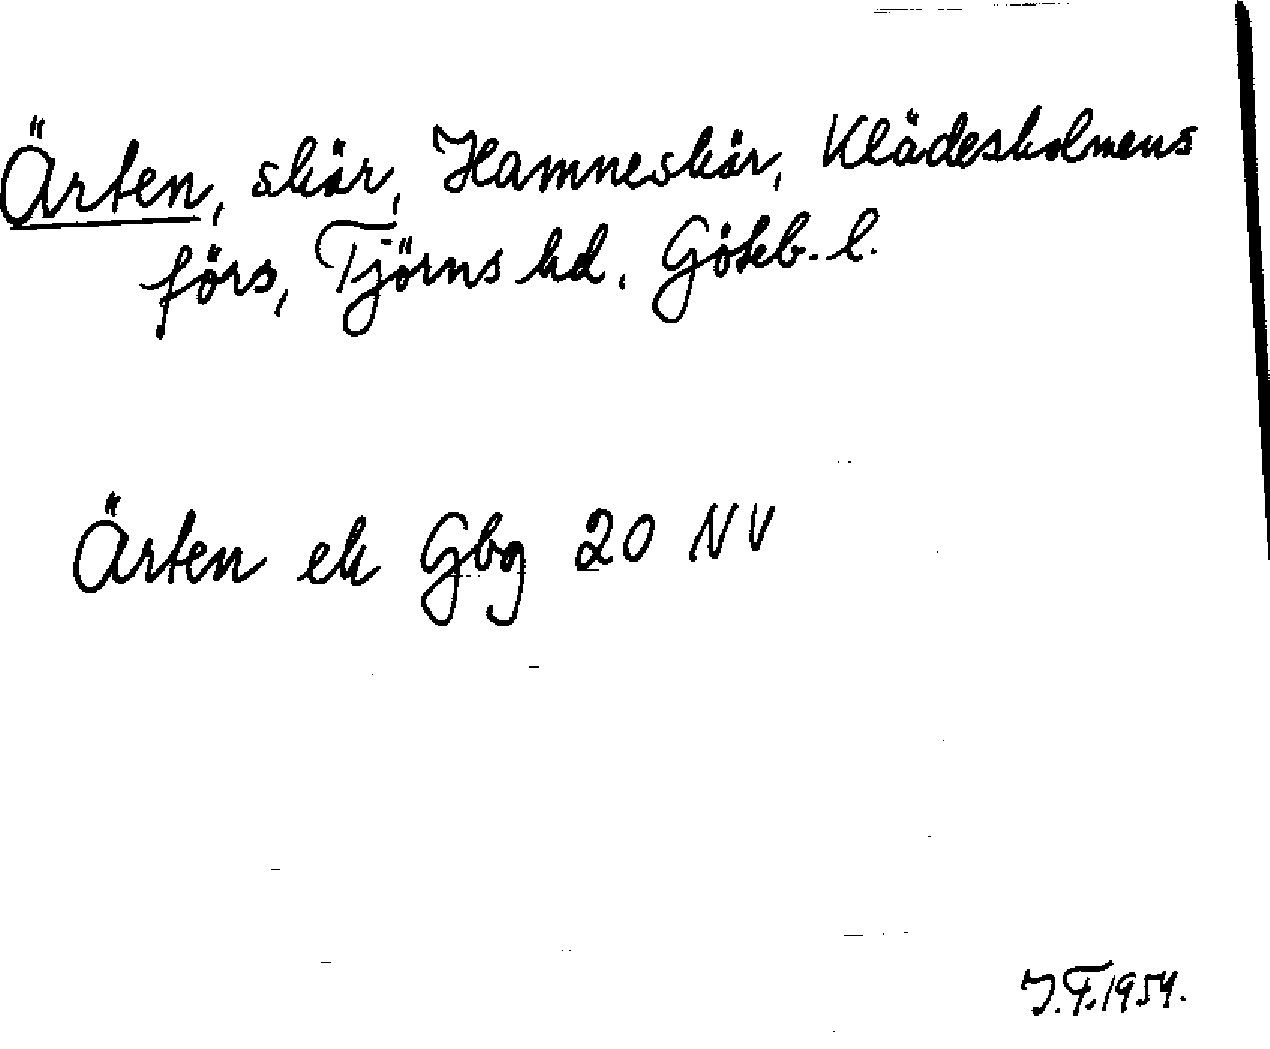 Ärten, skär, Hamneskär, Klädesholmens
förs, Tjörns hd. Göteb. l.
Ärten ek Gbg 20 NV
J.F. 1954.